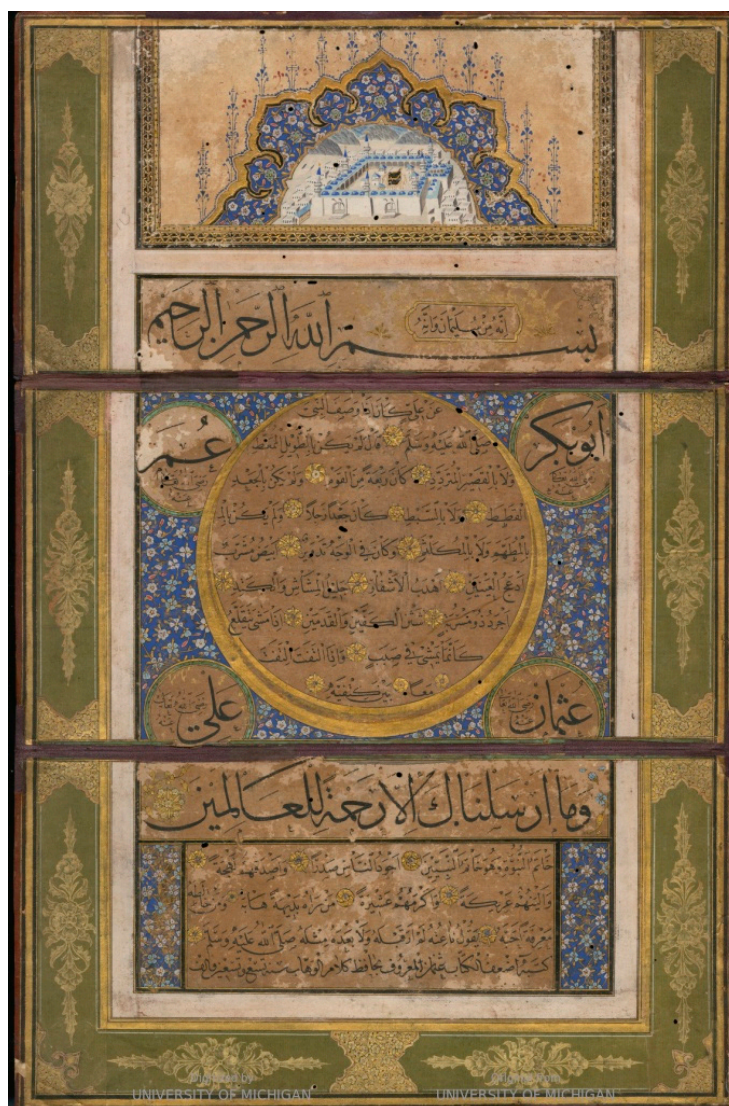 إنه من سليمان وإنه
بسم الله الرحمن الرحيم
أبو بكر رضي الله تعالى عنه
عمر رضي الله تعالى عنه
عن علي كان اذا وصف النبي
صلى الله عليه وسلم قال لم يكن بالطويل الممغط
ولا بالقصير المتردد كان ربعة من القوم ولم يكن بالجعد
القطط ولا بالسبط كان جعدا رجلا ولم يكن
بالمطهم ولا بالمكلثم وكان في الوجه تدوير ابيض مشرب
ادعج العينين اهدب الاشفار جليل المشاش والكتد
اجرد ذو مسربة شثن الكفين والقدمين اذا مشى يتقلع
كأنما يمشي في صبب واذا التفت التفت
معا بين كتفيه
عثمان رضي الله تعالى عنه
علي رضي الله تعالى عنه
وما ارسلناك الا رحمة للعالمين
خاتم النبوة وهو خاتم النبيين اجود الناس صدرا واصدقهم لهجة
والينهم عريكة واكرمهم عشيرة من رآه بديهة هابه ومن خالطه
معرفة احبه يقول ناعته لم ار قبله ولا بعده مثله صلى الله عليه وسلم
كتبه اضعف الكتاب عثمان المعروف بحافظ كلام الوهاب سنة تسع وتسعين والف
Digitized by
UNIVERSITY OF MICHIGAN
Original from
UNIVERSITY OF MICHIGAN